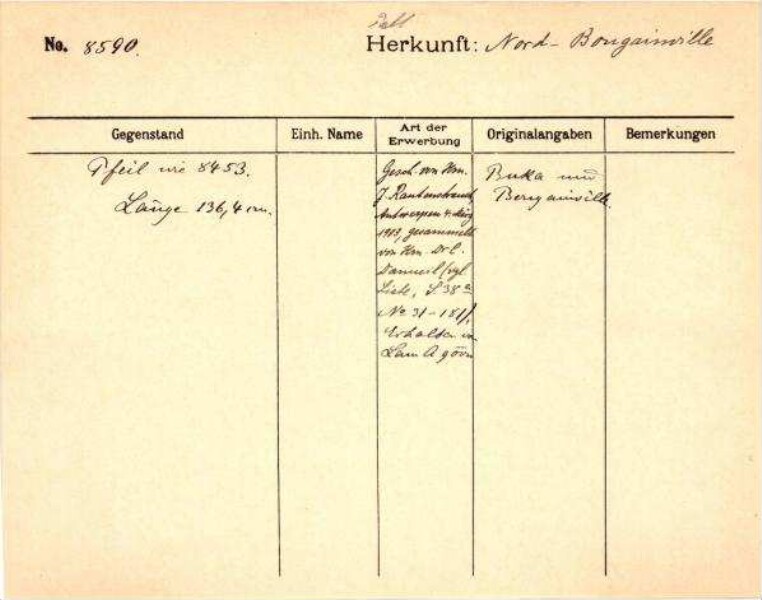 No. 8590.
Herkunft: Nord-Bougainville
Gegenstand
Einh. Name
Art der Erwerbung
Originalangaben
Bemerkungen
Pfeil wie 8453.
Länge 136,4 cm.
Gesch. von Hrn.
J. Rautenstrauch,
Antwerpen
1913, gesammelt
von Hrn. Dr.
(vgl.
Liste, S. 38a
No 31-181),
Erhalten
Buka und
Bougainville.